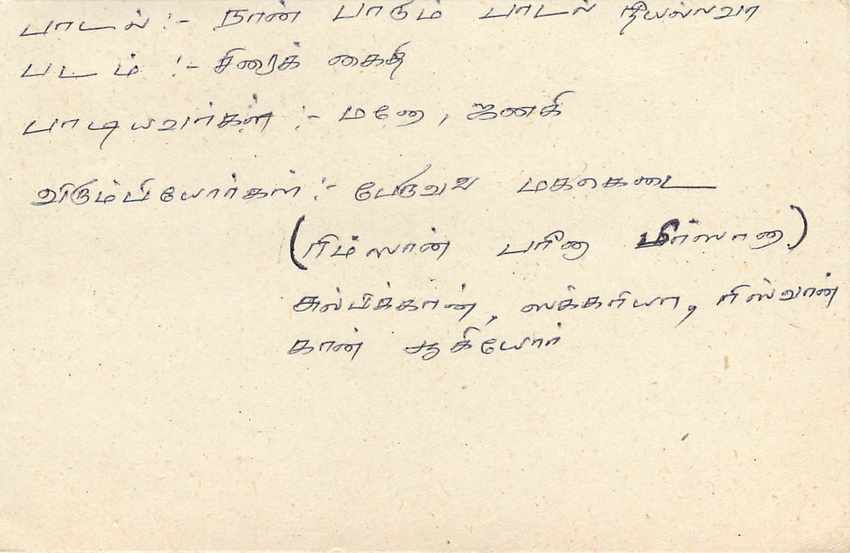 பாடல் :- நான் பாடும் பாடல் நீயல்லவா
படம் :- சிறைக் கைதி
பாடியவர்கள் :- மனோ, ஜனகி
விரும்பியோர்கள் :- பேருவல மக்கொடை
(ரிம்ஸான் பரினா மிர்ஸானா)
சுல்பிக்கான், ஸக்கரியா, ரிஸ்வான்
கான் ஆகியோர்